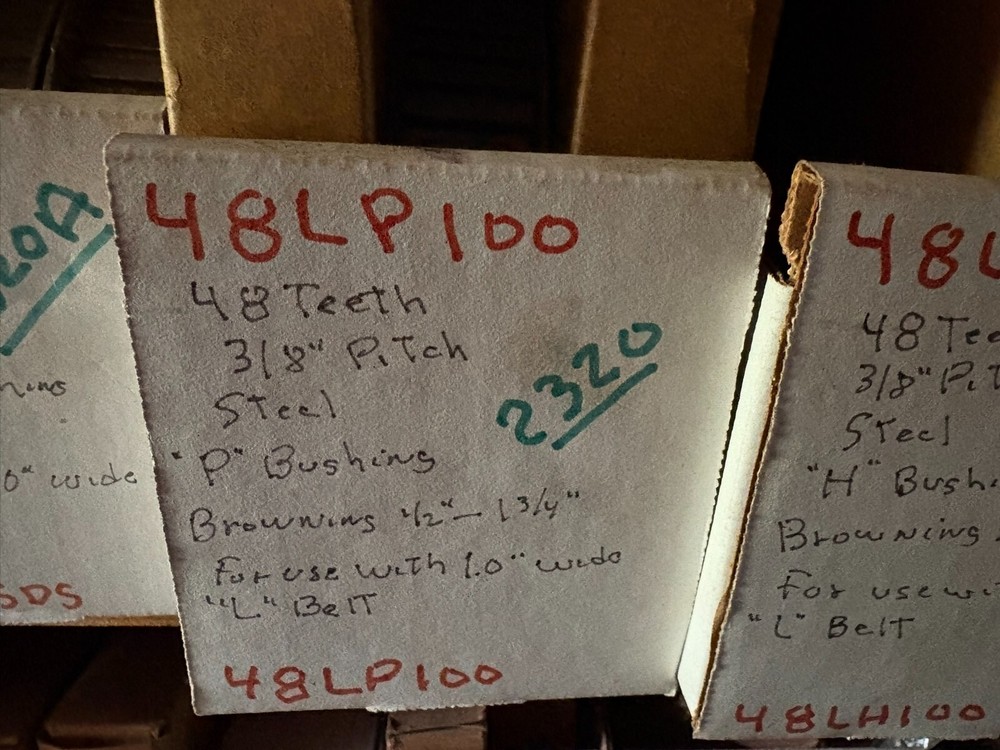 20A
ning
0" wide
SDS
48LP100
48 Teeth
3/8" PiTch
STeel
"P" Bushing
2320
Browning 1/2" – 1 3/4"
For use with 1.0" wide
"L" BelT
48LP100
48L
48 Tee
3/8" PiT
STeel
"H" Bushi
Browning
For use wi
"L" BelT
48LH100